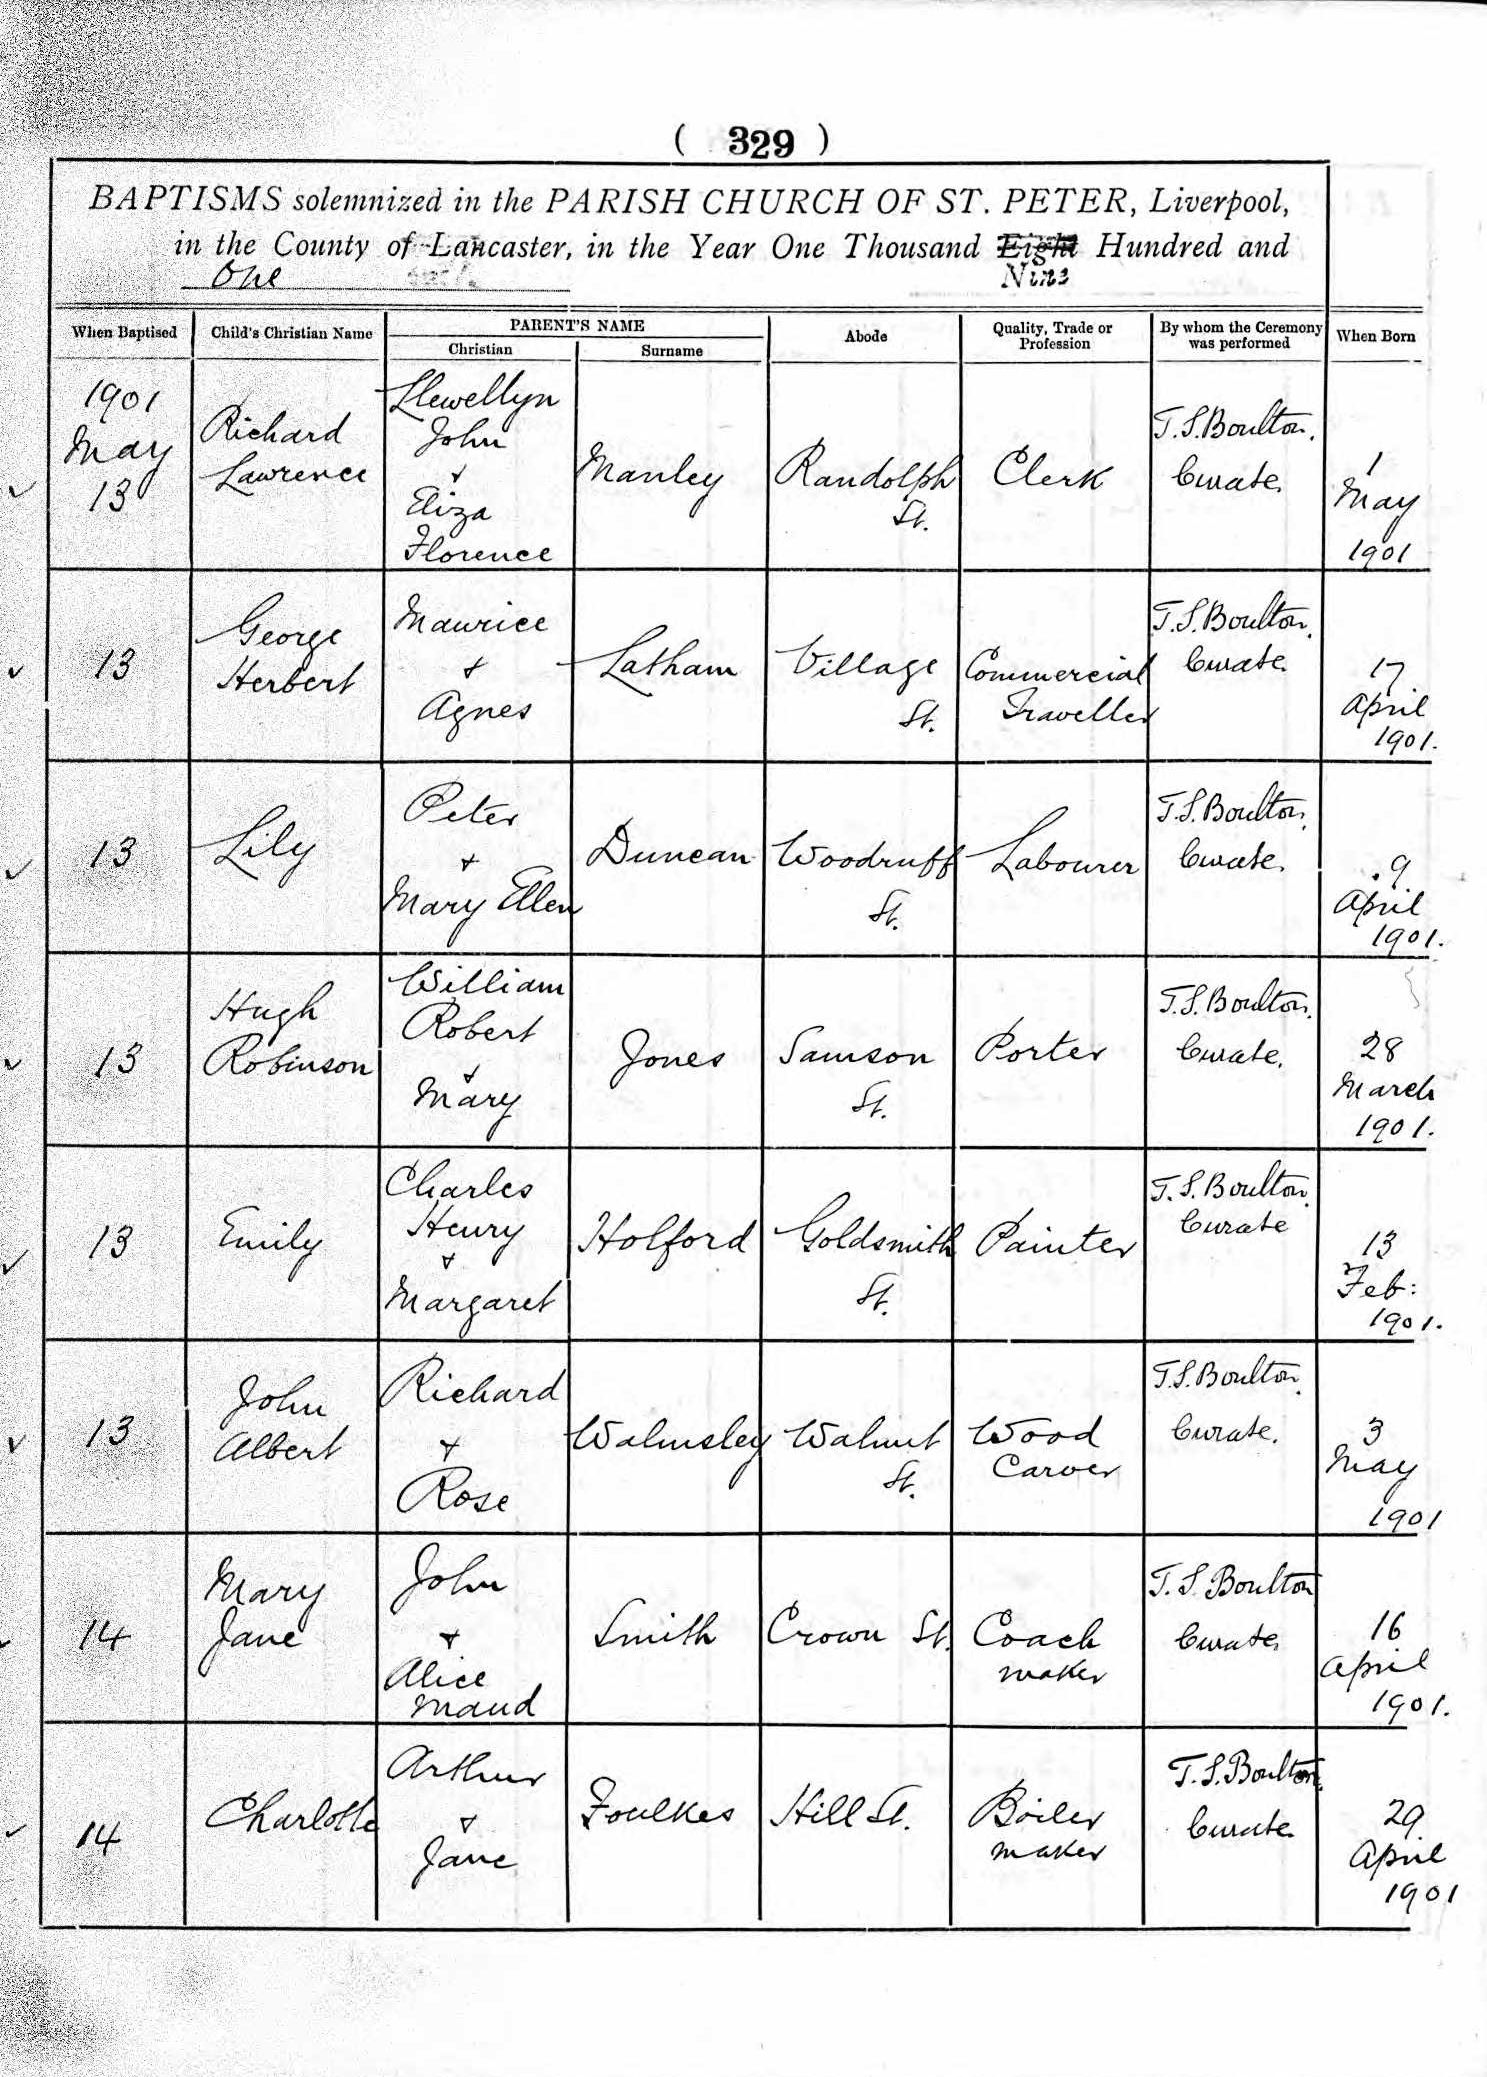 ( 329 )
BAPTISMS solemnized in the PARISH CHURCH OF ST. PETER, Liverpool,
in the County of Lancaster, in the Year One Thousand Eight Hundred and
One Nine
When Baptised Child's Christian Name PARENT'S NAME Abode Quality, Trade or Profession By whom the Ceremony was performed When Born
Christian Surname
1901
May
13
Richard
Lawrence
Llewellyn
John
+
Eliza
Florence
Manley
Randolph
St.
Clerk
T.S. Boulton.
Curate.
1
May
1901
13
George
Herbert
Maurice
+
Agnes
Latham
Village
St.
Commercial
Traveller
T.S. Boulton.
Curate.
17
April
1901.
13
Lily
Peter
+
Mary Ellen
Duncan
Woodruff
St.
Labourer
T.S. Boulton.
Curate.
9
April
1901.
13
Hugh
Robinson
William
Robert
+
Mary
Jones
Samson
St.
Porter
T.S. Boulton.
Curate.
28
March
1901.
13
Emily
Charles
Henry
+
Margaret
Holford
Goldsmith
St.
Painter
T.S. Boulton.
Curate
13
Feb:
1901.
13
John
Albert
Richard
+
Rose
Walmsley
Walnut
St.
Wood
Carver
T.S. Boulton.
Curate.
3
May
1901
14
Mary
Jane
John
+
Alice
Maud
Smith
Crown St.
Coach
maker
T.S. Boulton
Curate.
16
April
1901.
14
Charlotte
Arthur
+
Jane
Foulkes
Hill St.
Boiler
maker
T.S. Boulton.
Curate.
29
April
1901